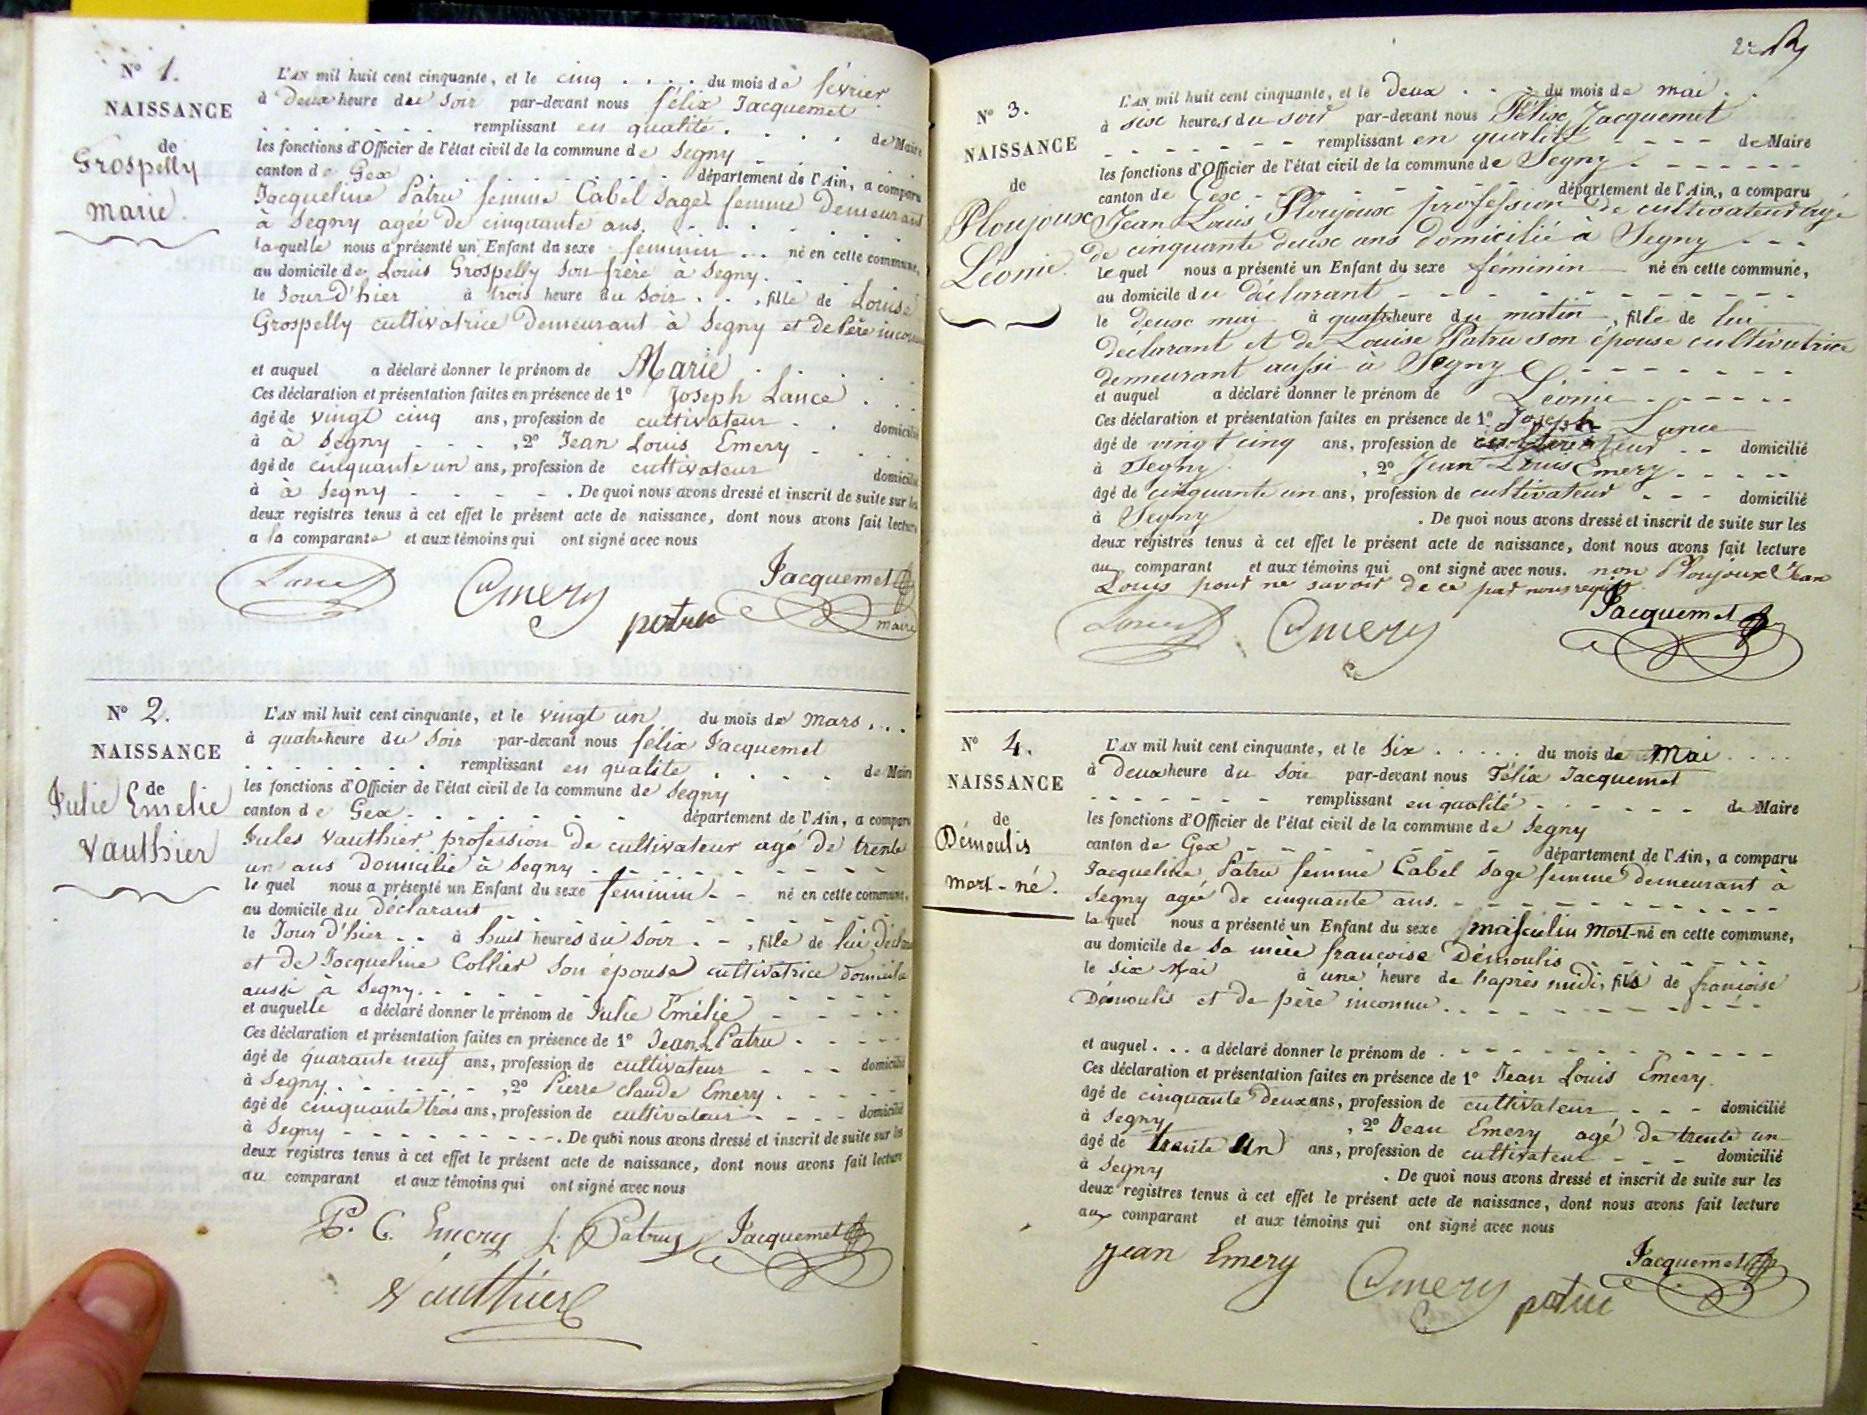 N° 1.
NAISSANCE
de
Grospelly
Marie.
L'AN mil huit cent cinquante, et le cinq . . . . du mois de février
à deux heure du soir par-devant nous félix Jacquemet
. . . . . . . remplissant en qualité . . . . de Maire
les fonctions d'Officier de l'état civil de la commune de Segny . . . .
canton de Gex . . . . . . . département de l'Ain, a comparu
Jacqueline Patru femme Cabel sage femme demeurant
à Segny agée de cinquante ans. . . . . .
laquelle nous a présenté un Enfant du sexe féminin . . né en cette commune,
au domicile de Louis Grospelly son frère à Segny. . . . .
le Jour d'hier à trois heure du soir . . , fille de Louise
Grospelly cultivatrice demeurant à Segny et de Père inconnu
et auquel a déclaré donner le prénom de Marie . . . .
Ces déclaration et présentation faites en présence de 1° Joseph Lance . . .
âgé de vingt cinq ans, profession de cultivateur . . domicilié
à à Segny - - - , 2° Jean Louis Emery - . . .
âgé de cinquante un ans, profession de cultivateur domicilié
à à Segny - - - - - . De quoi nous avons dressé et inscrit de suite sur les
deux registres tenus à cet effet le présent acte de naissance, dont nous avons fait lecture
a la comparante et aux témoins qui ont signé avec nous
Lance Emery patru Jacquemet
maire
N° 2.
NAISSANCE
de
Julie Emelie
Vauthier
L'AN mil huit cent cinquante, et le vingt un du mois de Mars . . . .
à quatre heure du soir par-devant nous félix Jacquemet
. . . . . . . remplissant en qualité . . . . de Maire
les fonctions d'Officier de l'état civil de la commune de Segny
canton de Gex - - - - - - - département de l'Ain, a comparu
Jules Vauthier profession de cultivateur agé de trente
un ans domicilié à Segny - - - - - - -
le quel nous a présenté un Enfant du sexe féminin - - né en cette commune,
au domicile du déclarant - - - - - - -
le Jour d'hier . . à huit heures du soir . - , fille de lui déclarant
et de Jacqueline Collier son épouse cultivatrice domicilié
aussi à Segny. - - - - - - -
et auquelle a déclaré donner le prénom de Julie Emélie - - - - -
Ces déclaration et présentation faites en présence de 1° Jean L Patru . - - - -
âgé de quarante neuf ans, profession de cultivateur - - - domicilié
à Segny . - - - - - , 2° Pierre claude Emery . - - - -
âgé de cinquante trois ans, profession de cultivateur - - - domicilié
à Segny - - - - - - - . De quoi nous avons dressé et inscrit de suite sur les
deux registres tenus à cet effet le présent acte de naissance, dont nous avons fait lecture
au comparant et aux témoins qui ont signé avec nous
P. C. Emery L. Patru Jacquemet
Vauthier
N° 3.
NAISSANCE
de
Ploujoux
Léonie.
L'AN mil huit cent cinquante, et le deux . . . du mois de mai . .
à six heures du soir par-devant nous Félix Jacquemet
- - - - - - - remplissant en qualité - - - - de Maire
les fonctions d'Officier de l'état civil de la commune de Segny - - - - - -
canton de Gex - - - - - - - département de l'Ain, a comparu
Jean Louis Ploujoux profession de cultivateur agé
de cinquante deux ans domicilié à Segny - - -
le quel nous a présenté un Enfant du sexe féminin né en cette commune,
au domicile du déclarant - - - - - - - -
le deux mai à quatre heure du matin , fille de lui
déclarant et de Louise Patru son épouse cultivatrice
demeurant aussi à Segny - - - - - - -
et auquel a déclaré donner le prénom de Léonie - - - - -
Ces déclaration et présentation faites en présence de 1° Joseph Lance
âgé de vingt cinq ans, profession de cultivateur - - domicilié
à Segny. , 2° Jean Louis Emery - - - - -
âgé de cinquante un ans, profession de cultivateur - - - domicilié
à Segny . De quoi nous avons dressé et inscrit de suite sur les
deux registres tenus à cet effet le présent acte de naissance, dont nous avons fait lecture
au comparant et aux témoins qui ont signé avec nous. non Ploujoux Jean
Louis pour ne savoir de ce par nous requis.
Lance Emery Jacquemet
N° 4.
NAISSANCE
de
Démoulis
mort-né.
L'AN mil huit cent cinquante, et le Six . . . . . du mois de Mai . . . .
à deux heure du soir par-devant nous Félix Jacquemet
- - - - - - - remplissant en qualité - - - - - - de Maire
les fonctions d'Officier de l'état civil de la commune de Segny
canton de Gex - - - - - - - département de l'Ain, a comparu
Jacqueline Patru femme Cabel sage femme demeurant à
Segny agée de cinquante ans. - - - - - - -
laquel nous a présenté un Enfant du sexe masculin Mort-né en cette commune,
au domicile de sa mère françoise Démoulis - - - - - - -
le six Mai à une heure de l'après midi, fils de françoise
Démoulis et de père inconnu . - - - - - - - -
et auquel . . . a déclaré donner le prénom de . - - - - - - - -
Ces déclaration et présentation faites en présence de 1° Jean Louis Emery.
âgé de cinquante deux ans, profession de cultivateur - - - domicilié
à Segny , 2° Jean Emery agé de trente un
âgé de trente un ans, profession de cultivateur - - - domicilié
à Segny . De quoi nous avons dressé et inscrit de suite sur les
deux registres tenus à cet effet le présent acte de naissance, dont nous avons fait lecture
aux comparant et aux témoins qui ont signé avec nous
Jean Emery Emery patru Jacquemet